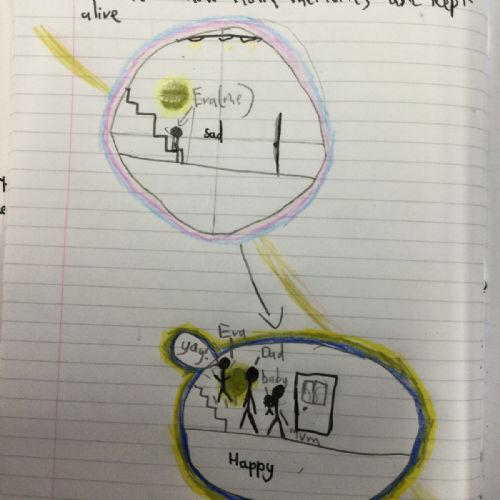 memories are kept
alive
Eva(me)
sad
Eva
yay!
Dad
baby
mum
Happy